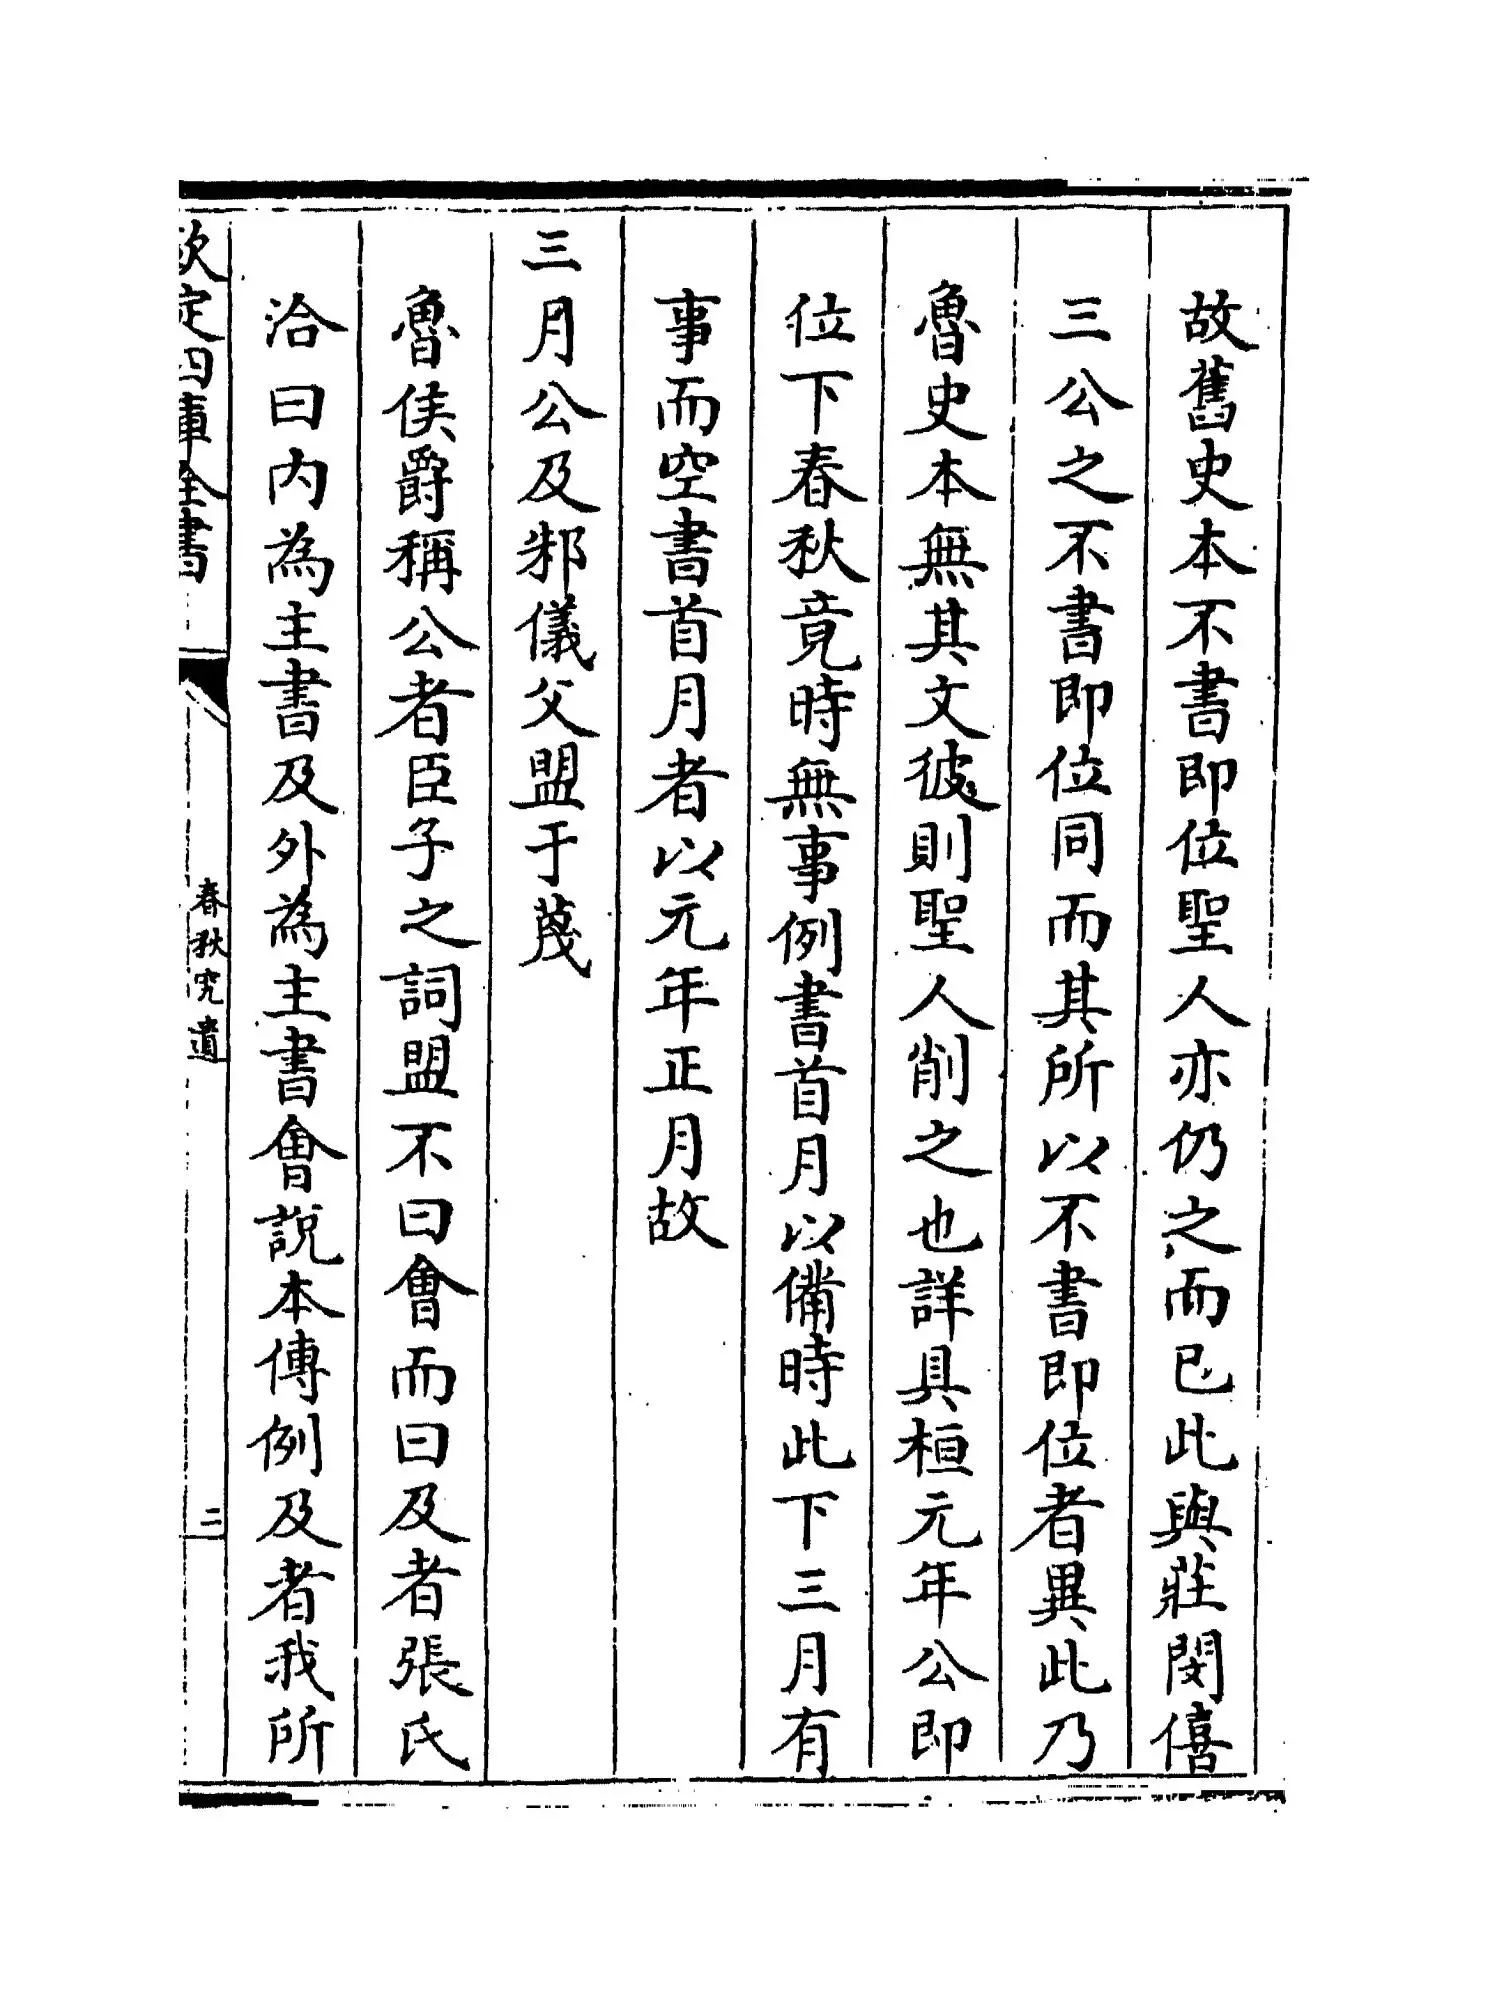 故舊史本不書即位聖人亦仍之而已此與莊閔僖
三公之不書即位同而其所以不書即位者異此乃
魯史本無其文彼則聖人削之也詳具桓元年公即
位下春秋竟時無事例書首月以備時此下三月有
事而空書首月者以元年正月故
三月公及邾儀父盟于蔑
魯侯爵稱公者臣子之詞盟不曰會而曰及者張氏
洽曰内為主書及外為主書會說本傳例及者我所
欽定四庫全書
春秋究遺
二